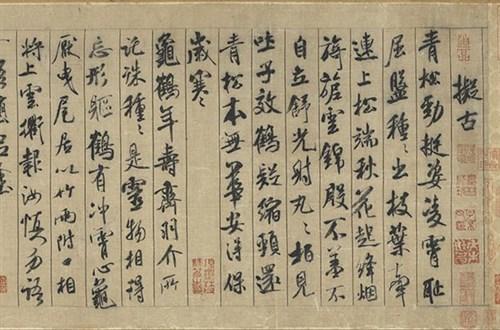 擬古
青松勁挺姿凌霄恥
屈盤種〻出枝葉牽
連上松端秋花起絳烟
旖旎雲錦殷不羞不
自立舒光射丸〻柏見
吐子效鶴疑縮頸還
青松本無華安得保
歲寒
龜鶴年壽齊羽介所
託殊種〻是靈物相得
忘形軀鶴有沖霄心龜
厭曳尾居以竹兩附口相
將上雲衢報汝慎勿語